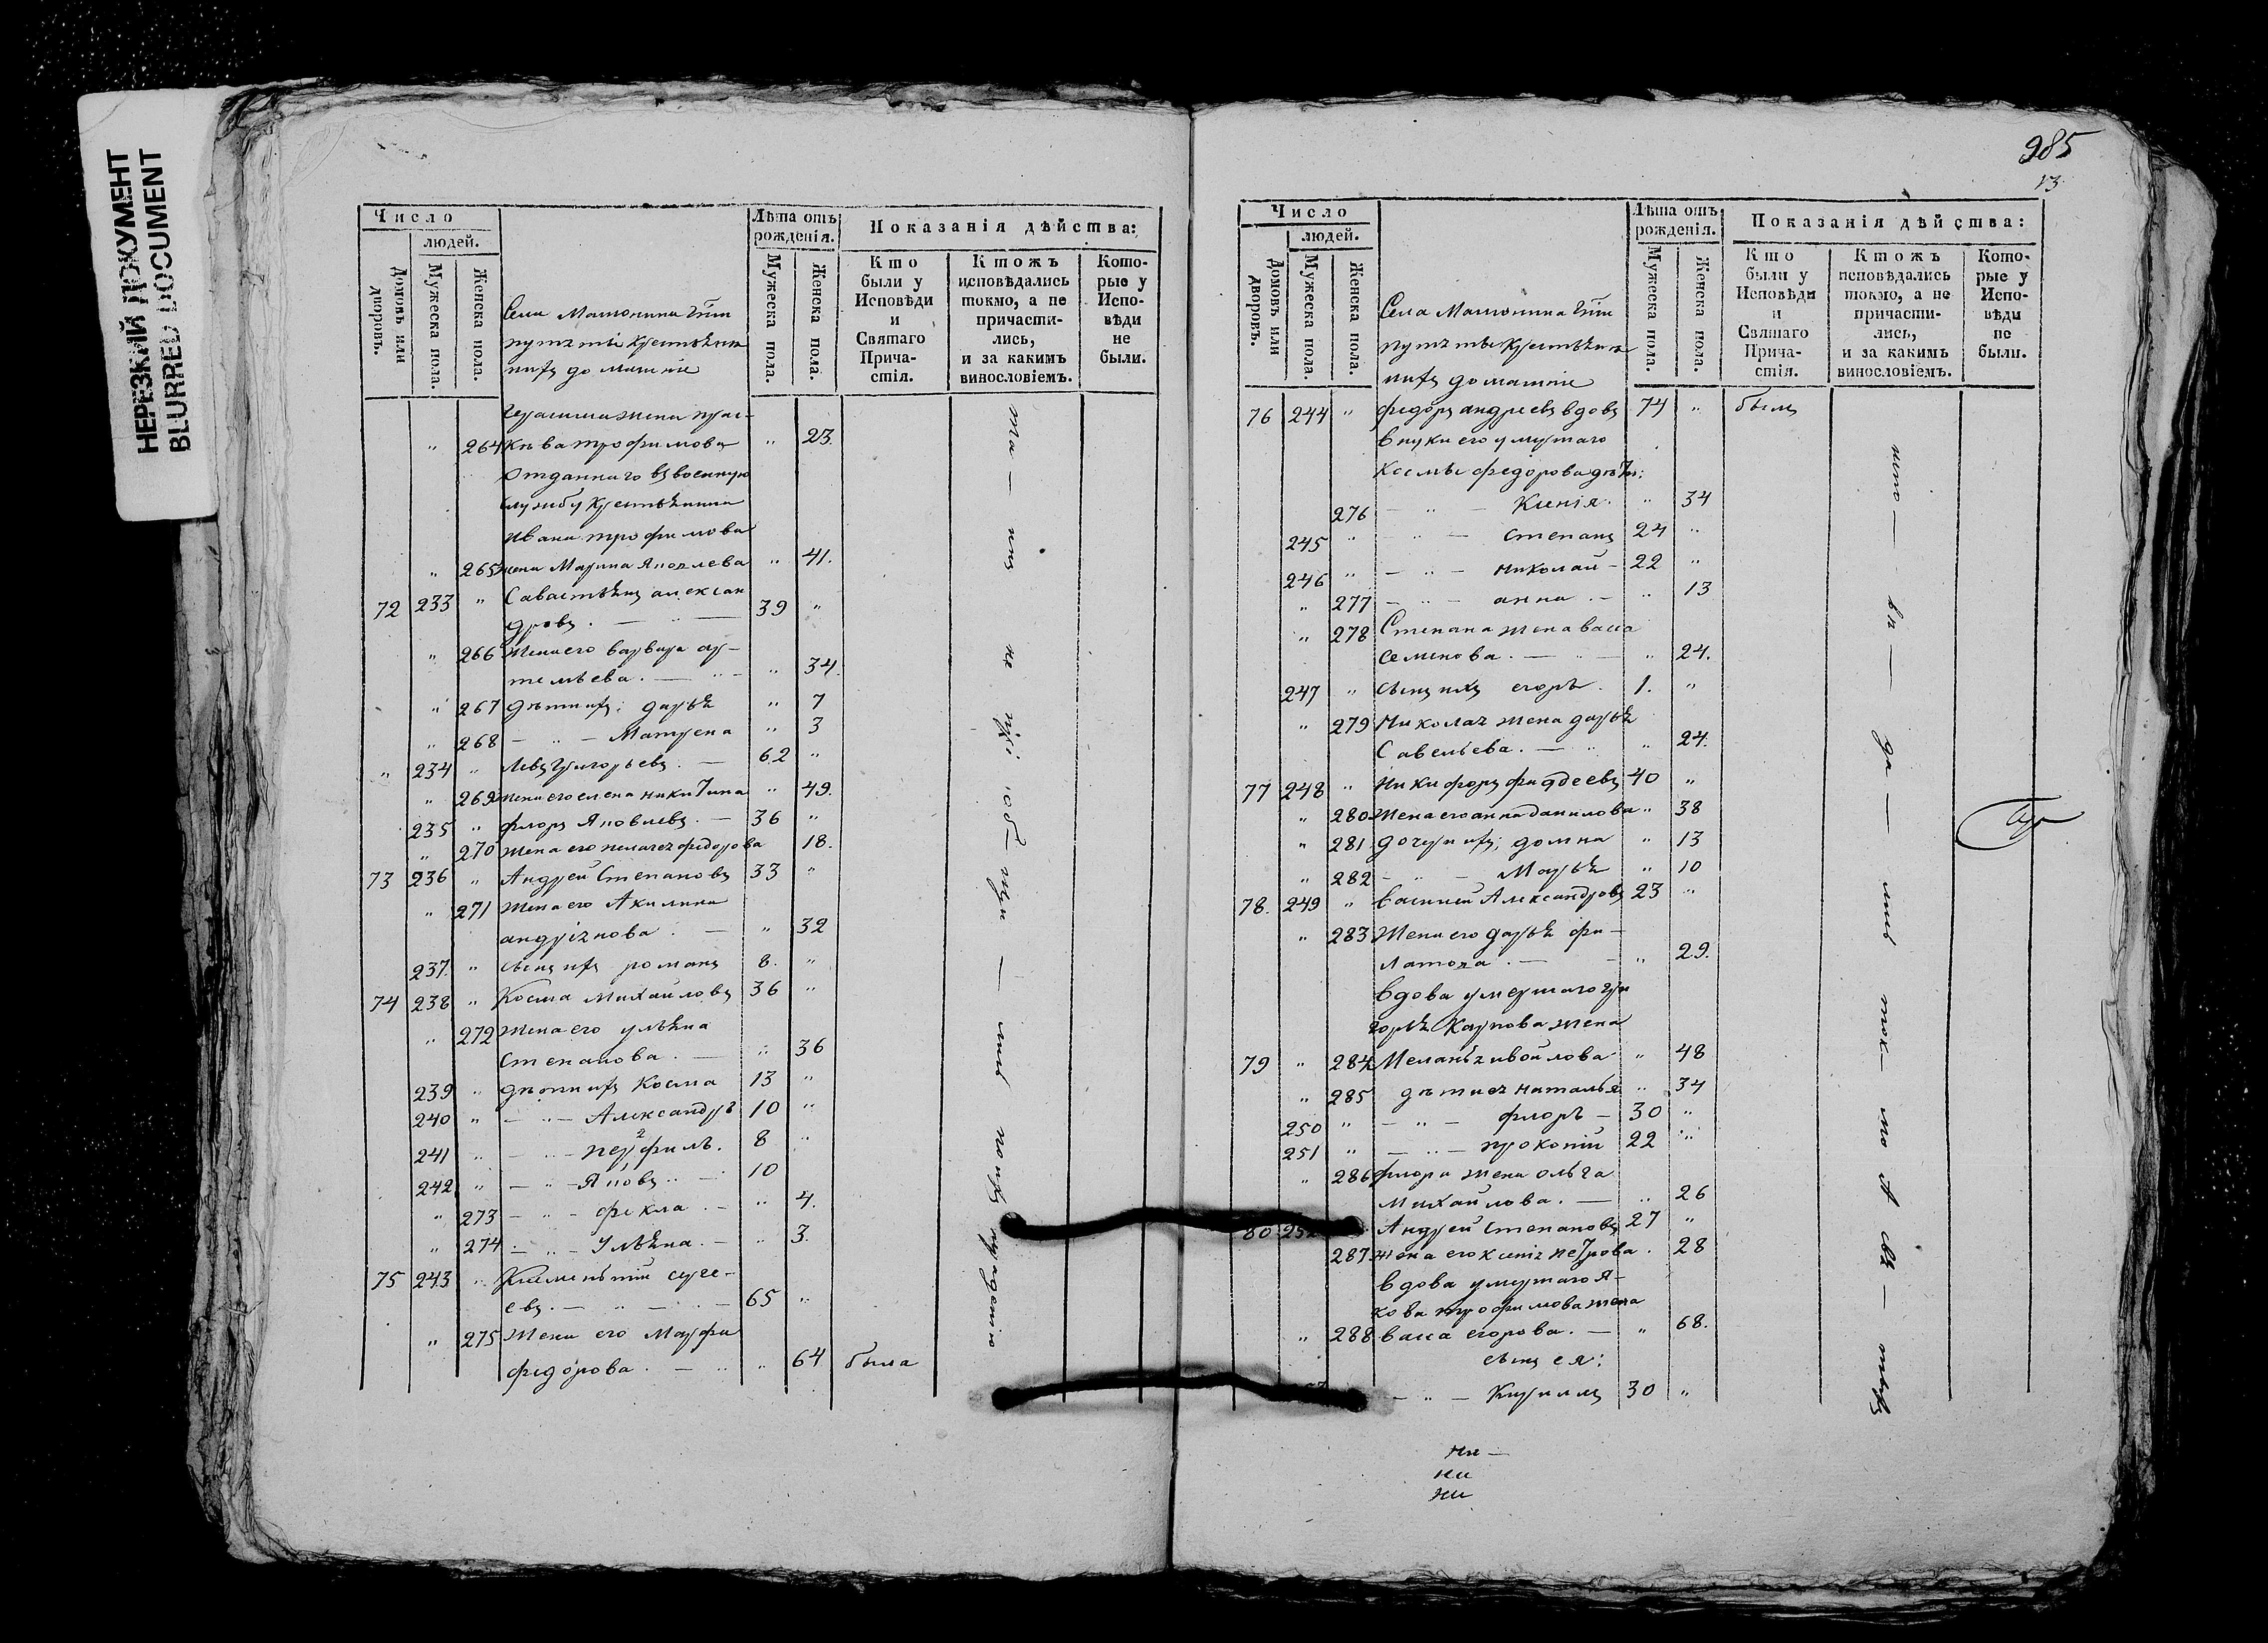 НЕРЕЗКИЙ ДОКУМЕНТ
BLURRED DOCUMENT
Число
людей.
Домовъ или дворовъ.
Мужеска пола.
Женска пола.
Лѣта отъ рожденія.
Мужеска пола.
Женска пола.
Показанія дѣйства:
Кто были у Исповѣди и Святаго Причастія.
Ктожъ исповѣдались токмо, а не причастились, и за какимъ винословіемъ.
Которые у Исповѣди не были.
Села
домашніе
жена прас-
" 264 Трофимова " 23.
Отданнаго въ военную
службу крестьянина
Ивана Трофимова
" 265 жена Марина Яковлева " 41.
72 233 " Савастьянъ алексан
дровъ. — " — 39 "
" 266 жена его варвара ар-
темьева. — " - " 34.
" 267 дѣти ихъ: дарья " 7
" 268 - " - Матрена " 3
" 234 " Левъ Григорьевъ. — 62 "
" 269 жена его елена никитина " 49.
235 " флоръ Яковлевъ. — 36 "
" 270 жена его пелагея федорова 18.
73 236 " Андрей Степановъ 33 "
" 271 жена его Акилина
андріянова . — " 32
237. " сынъ ихъ романъ 8. "
74 238 " Косма михайловъ 36 "
" 272 жена его ульяна
Степанова. — " 36
239 " дѣти ихъ Косма 13 "
240 " - " - Александръ 10 "
241 " - " - перфилъ. 8 "
242 " - " - Яковъ 10
" 273 - " - фекла. - " 4.
" 274 - " - Ульяна. - " 3.
75 243 " Климентій серге-
евъ. — " — 65 "
" 275 Жена его Марфа
федорова. — " " 64 была
985
Число
людей.
Домовъ или дворовъ.
Мужеска пола.
Женска пола.
Лѣта отъ рожденія.
Мужеска пола.
Женска пола.
Показанія дѣйства:
Кто были у Исповѣди и Святаго Причастія.
Ктожъ исповѣдались токмо, а не причастились, и за какимъ винословіемъ.
Которые у Исповѣди не были.
Села
домашніе
76 244 " федоръ андреевъ вдовъ 74 " былъ
внуки его умершаго
космы федорова дѣти:
276 - " - Ксенія. " 34
245 " - " - степанъ 24 "
246 " - " - николай - 22 "
" 277 - " - анна. - " 13
" 278 Степана жена васа
семенова. — " — " 24.
247 " сынъ ихъ егоръ. 1. "
" 279 Николая жена дарья
Савельева. — " " 24.
77 248 " Никифоръ фадеевъ 40 "
" 280 жена его анна данилова " 38
" 281 дочери ихъ: домна " 13
" 282 - " - Марья " 10
78. 249 " василій Александровъ 23 "
" 283 Жена его дарья фи-
латова. — - " 29.
вдова умершаго гри
горья Карпова жена
79 " 284 Меланья измайлова " 48
" 285 дѣти ея наталья " 34
250 " - " - флоръ - 30 "
251 " - " - прокопій 22 "
" 286 флора жена ольга
михайлова. — " 26
80 252 Андрей степановъ 27 "
287 жена его ксенія петрова. 28
вдова умершаго я-
кова трофимова жена
" 288 васа егорова. — " 68.
сынъ ея:
- " - Кирилъ 30 "
ни -
ни
ни